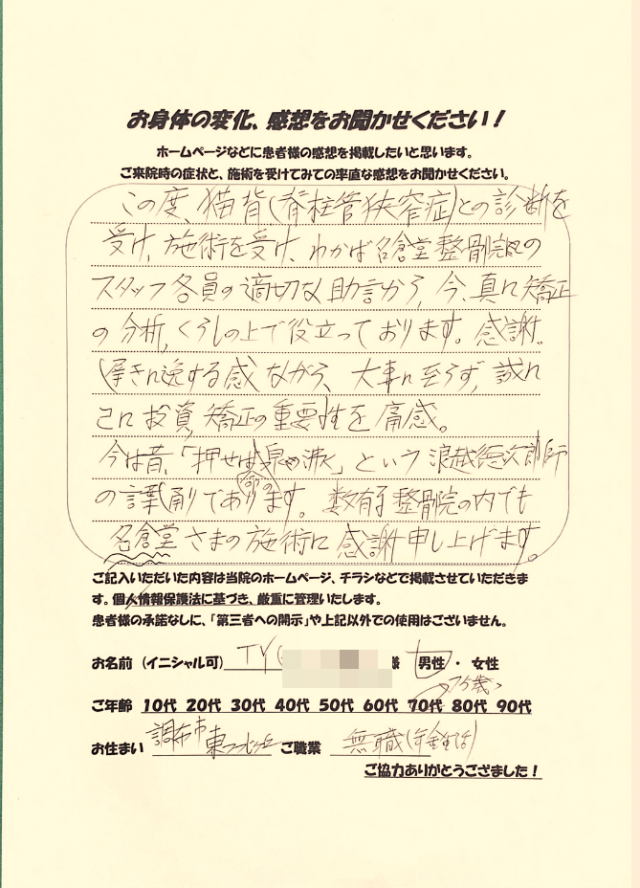 お身体の変化、感想をお聞かせください！
ホームページなどに患者様の感想を掲載したいと思います。
ご来院時の症状と、施術を受けてみての率直な感想をお聞かせください。
この度、猫背(脊柱管狭窄症)との診断を
受け、施術を受け、わかば名倉堂整骨院の
スタッフ各員の適切な助言から、今、真に矯正
の分析、くらしの上で役立っております。感謝。
する感ながら、大事に至らず、誠に
これ投資、矯正の重要性を痛感。
今は昔、「押せば命の泉や沸く」という浪越徳次郎師
の言葉通りであります。数有る整骨院の内でも
名倉堂さまの施術に感謝申し上げます。
ご記入いただいた内容は当院のホームページ、チラシなどで掲載させていただきま
す。個人情報保護法に基づき、厳重に管理いたします。
患者様の承諾なしに、「第三者への開示」や上記以外での使用はございません。
お名前（イニシャル可） TY 様 男性 ・ 女性
ご年齢 10代 20代 30代 40代 50代 60代 70代 80代 90代
お住まい 調布市東つつじヶ丘 ご職業 無職(年金生活)
ご協力ありがとうござました！